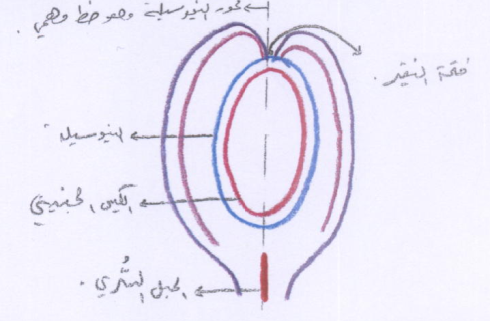 محور النيوسيلة وهو خط وهمي.
فتحة النقير.
النيوسيلة
الكيس الجنيني
الحبل السُّري.